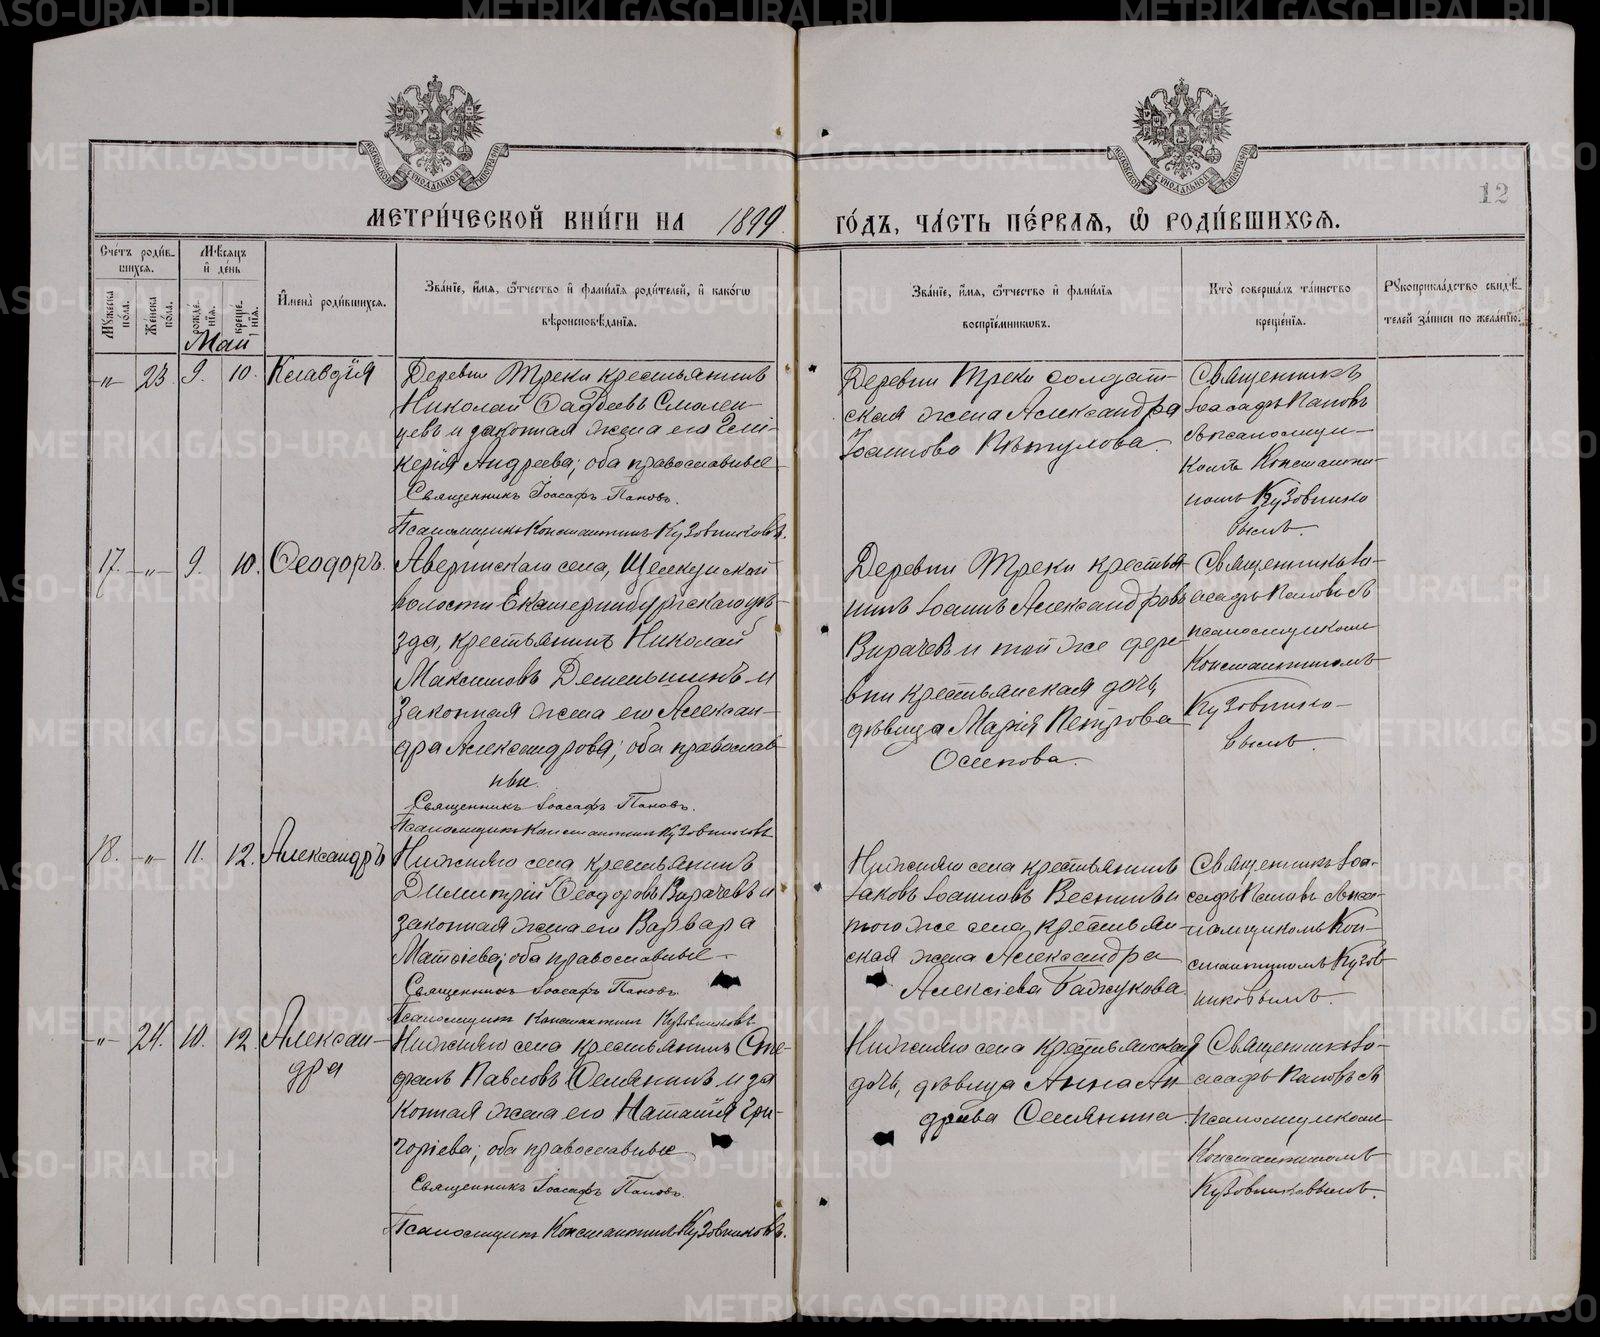 МЕТРИ́ЧЕСКОЙ КНИ́ГИ НА 1899 ГО́ДЪ, ЧА́СТЬ ПЕ́РВАЯ, Ѡ РОДИ́ВШИХСЯ.
12
Сче́тъ роди́в-
шихся.
Мꙋ́жеска по́ла.
Же́нска по́ла.
Мѣ́сяцъ и҆ де́нь
рожде́-
нїя.
креще́-
нїя.
И҆мена̀ роди́вшихся.
Зва́нїе, и҆́мя, ѻ҆́тчество и҆ фами́лїя роди́телей, и҆ како́гѡ
вѣроисповѣ́данїя.
Зва́нїе, и҆́мя, ѻ҆́тчество и҆ фами́лїя
воспрїе́мникѡвъ.
Кто̀ соверша́лъ та́инство
креще́нїя.
Рꙋкоприкла́дство свидѣ́-
телей за́писи по жела́нїю.
Май
„ 23. 9. 10. Клавдія
Деревни Треки крестьянинъ
Николай Ѳаддеевъ Смолен-
цевъ и законная жена его Гли-
керія Андреева; оба православные
Священникъ Іоасафъ Пановъ.
Псаломщикъ Константинъ Кузовниковъ.
Деревни Треки солдат-
ская жена Александра
Іоаннова Пѣтухова.
Священникъ
Іоасафъ Пановъ
съ псаломщи-
комъ Константи-
номъ Кузовнико
вымъ.
17. „ 9. 10. Ѳеодоръ.
Аверинскаго села, Щелкунской
волости Екатеринбургскаго уѣ-
зда, крестьянинъ Николай
Максимовъ Деменьшинъ и
законная жена его Алексан-
дра Александрова; оба православ
ные.
Священникъ Іоасафъ Пановъ.
Псаломщикъ Константинъ Кузовниковъ
Деревни Треки крестья
нинъ Іоаннъ Александровъ
Вирачевъ и той же дере-
вни крестьянская дочь,
дѣвица Марія Петрова
Осипова.
Священникъ Іо-
асафъ Пановъ съ
псаломщикомъ
Константиномъ
Кузовнико-
вымъ.
18. „ 11. 12. Александръ
Нижняго села крестьянинъ
Димитрій Ѳеодоровъ Вирачевъ и
законная жена его Варвара
Матѳіева; оба православные
Священникъ Іоасафъ Пановъ.
Псаломщикъ Константинъ Кузовниковъ
Нижняго села крестьянинъ
Іаковъ Іоанновъ Веснинъ и
того же села крестьян-
ская жена Александра
Алексіева Бажукова.
Священникъ Іоа-
сафъ Пановъ съ пса-
ломщикомъ Кон-
стантиномъ Кузов-
никовымъ.
„ 24. 10. 12. Алексан-
дра
Нижняго села крестьянинъ Сте-
фанъ Павловъ Семянинъ и за
конная жена его Наталія Гри-
горіева; оба православные
Священникъ Іоасафъ Пановъ.
Псаломщикъ Константинъ Кузовниковъ.
Нижняго села крестьянская
дочь, дѣвица Анна Ан
дреева Семянина.
Священникъ Іо-
асафъ Пановъ съ
псаломщикомъ
Константиномъ
Кузовниковымъ.